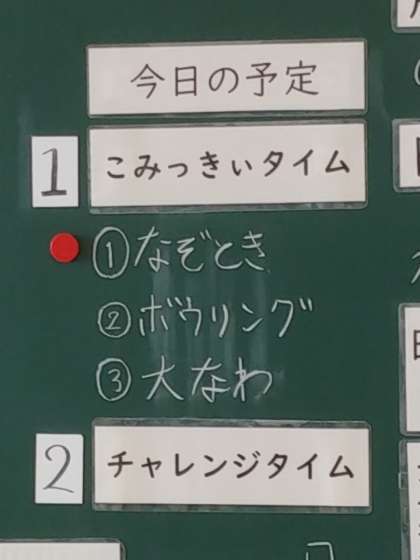 今日の予定
1 こみっきぃタイム
①なぞとき
②ボウリング
③大なわ
2 チャレンジタイム